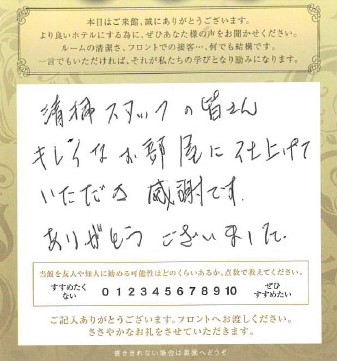 本日はご来館、誠にありがとうございます。
より良いホテルにする為に、ぜひあなた様の声をお聞かせください。
ルームの清潔さ、フロントでの接客…何でも結構です。
一言でもいただければ、それが私たちの学びとなり励みになります。
清掃スタッフの皆さん
キレイなお部屋に仕上げて
いただき感謝です。
ありがとうございました。
当館を友人や知人に勧める可能性はどのくらいあるか、点数で教えてください。
すすめたくない 0 1 2 3 4 5 6 7 8 9 10 ぜひすすめたい
ご記入ありがとうございます。フロントへお渡しください。
ささやかなお礼をさせていただきます。
書ききれない場合は裏面へどうぞ